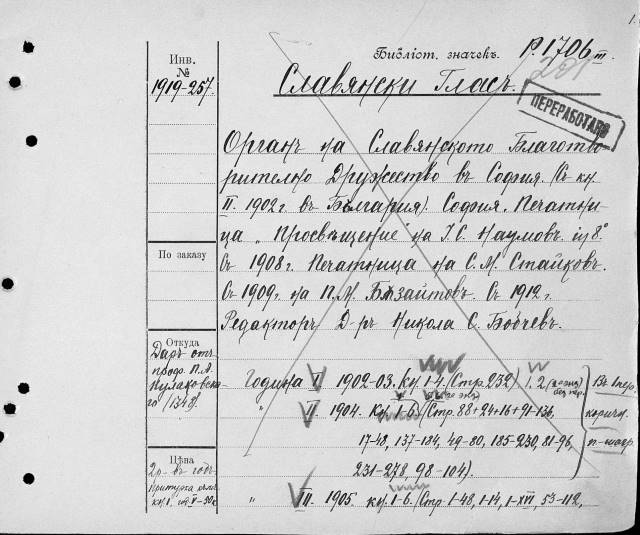 Библіот. значекъ. Р. 1706 III
Инв.
№
1919-257.
Славянски Гласъ.
ПЕРЕРАБОТАНО
Органъ на Славянското Благотво
рително Дружество въ София. (Съ кн
II. 1902 г. въ България). София. Печатни-
ца „Просвѣщение" на І. С. Наумовъ. in 8°
По заказу
Съ 1908 г. Печатница на С. М. Стайковъ.
Съ 1909 г. на П. М. Бъзайтовъ. Съ 1912 г.
Редакторъ Д-ръ Никола С. Бобчевъ.
Откуда
Даръ отъ
проф. П. А.
Кулаковска-
го /1348/.
Година I 1902-03. Кн. 1-4. (Стр. 232) 1. 2
" II 1904. Кн. 1-6. (Стр. 88+24+16+91-136,
17-48, 137-184, 49-80, 185-230, 81-96,
231-278, 98-104).
Въ 1 пер.
коричн.
Цѣна
2 р. въ годъ
" III 1905. кн. 1-6. (Стр. 1-48, 1-14, 1-XVI, 53-112,